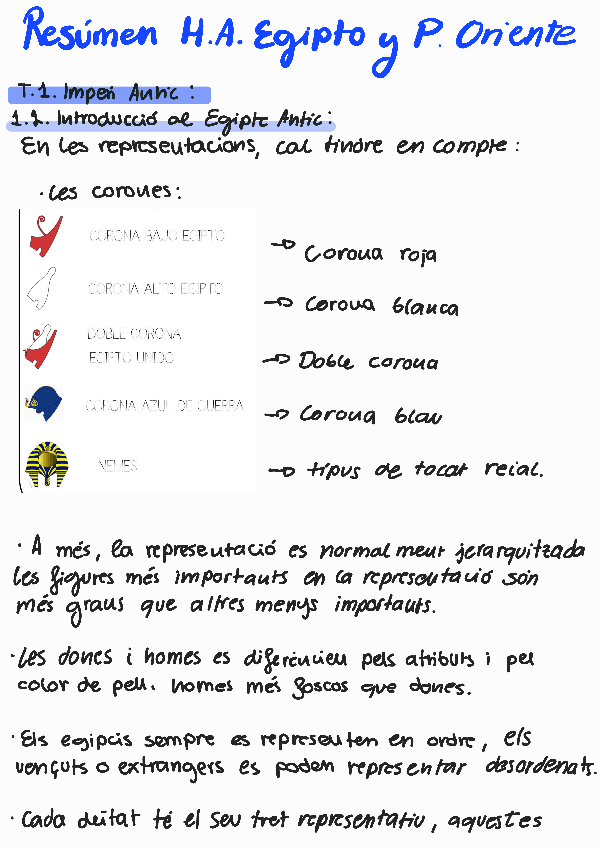 Resúmen H.A. Egipto y P. Oriente
T.1. Imperi Antic :
1.1. Introducció al Egipte Antic:
En les representacions, cal tindre en compte :
· Les corones:
CORONA BAJO EGIPTO → Corona roja
CORONA ALTO EGIPTO → Corona blanca
DOBLE CORONA
EGIPTO UNIDO → Doble corona
CORONA AZUL DE GUERRA → Corona blau
NEMES → tipus de tocat reial.
· A més, la representació es normalment jerarquitzada
les figures més importants en la representació són
més grans que altres menys importants.
· Les dones i homes es diferèncien pels atributs i pel
color de pell. homes més foscos que dones.
· Els egipcis sempre es representen en ordre, els
vençuts o extrangers es poden representar desordenats.
· Cada deïtat té el seu tret representatiu, aquestes